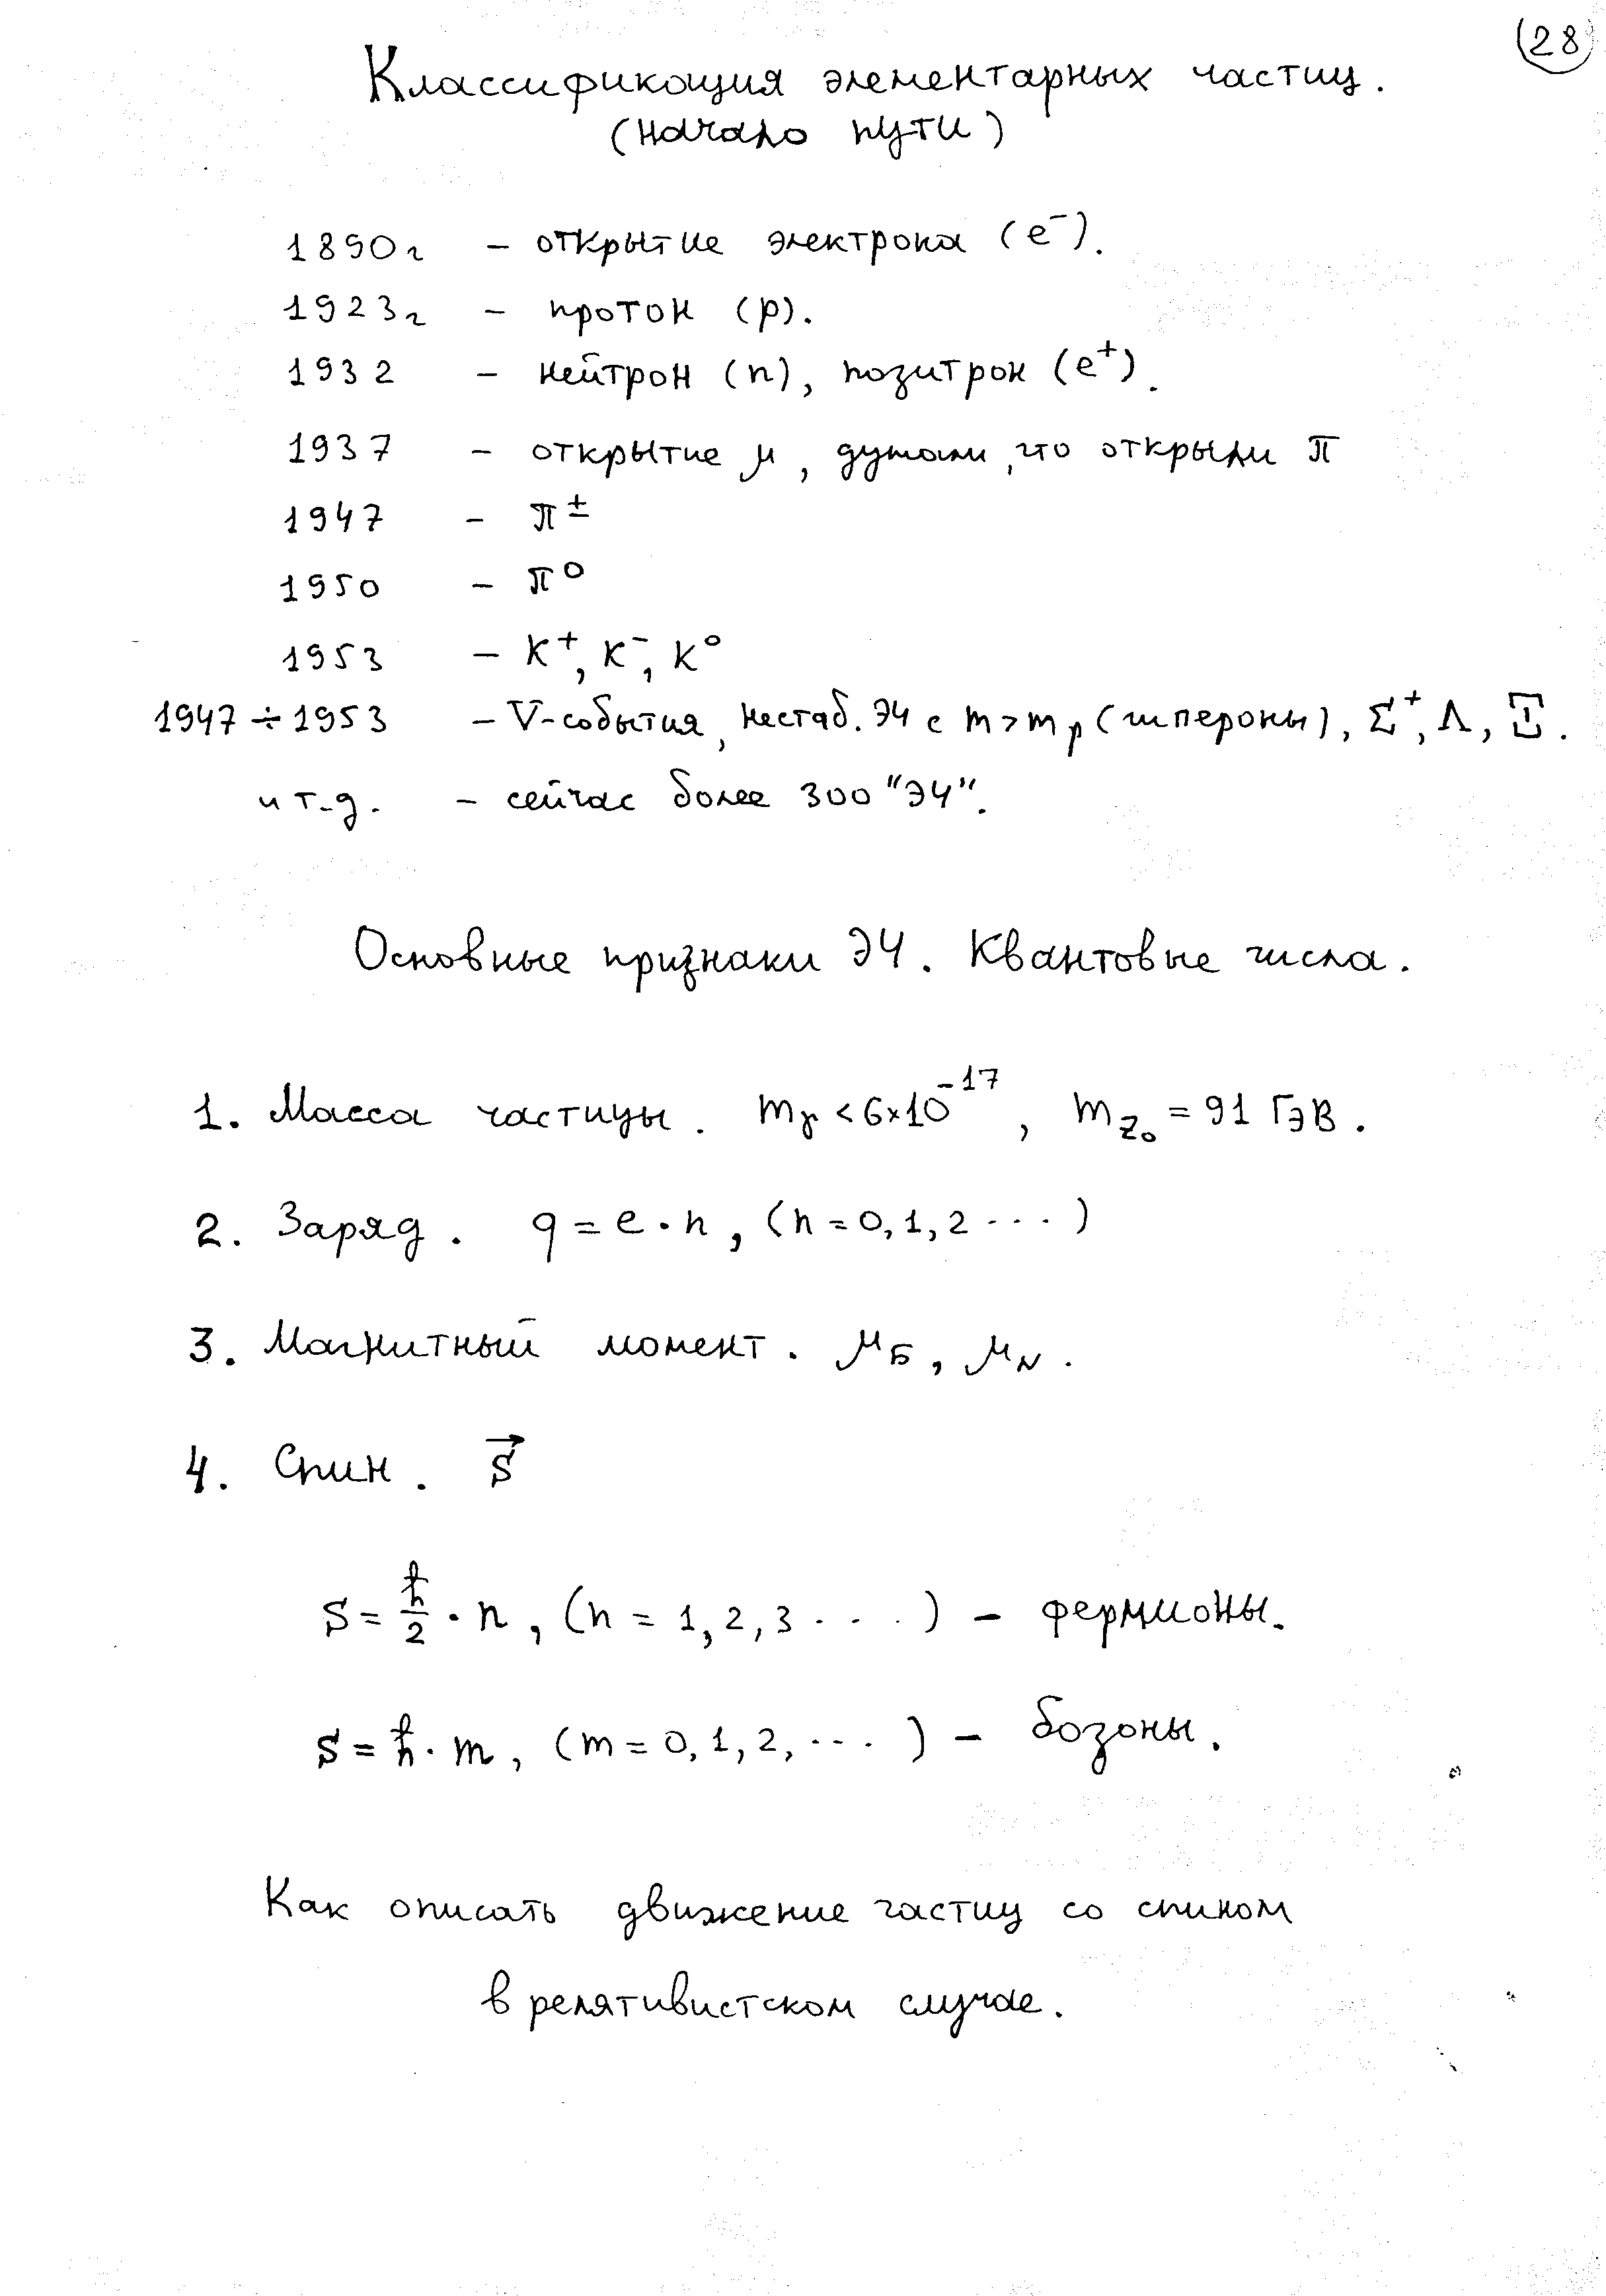 (28)
Классификация элементарных частиц.
(начало пути)
1890г - открытие электрона (e⁻).
1923г - протон (p).
1932 - нейтрон (n), позитрон (e⁺).
1937 - открытие μ, думали, что открыли π
1947 - π±
1950 - π⁰
1953 - K⁺, K⁻, K⁰
1947 ÷ 1953 - V-события, нестаб. ЭЧ с m > mₚ (гипероны), Σ⁺, Λ, Ξ.
и т.д. - сейчас более 300 "ЭЧ".
Основные признаки ЭЧ. Квантовые числа.
1. Масса частицы. m_γ < 6×10⁻¹⁷, m_Z₀ = 91 ГэВ.
2. Заряд. q = e·n, (n = 0, 1, 2 ...)
3. Магнитный момент. μ_Б, μ_N.
4. Спин. s⃗
S = ℏ/2 · n, (n = 1, 2, 3 ...) - фермионы.
S = ℏ · m, (m = 0, 1, 2, ...) - бозоны.
Как описать движение частиц со спином
в релятивистском случае.